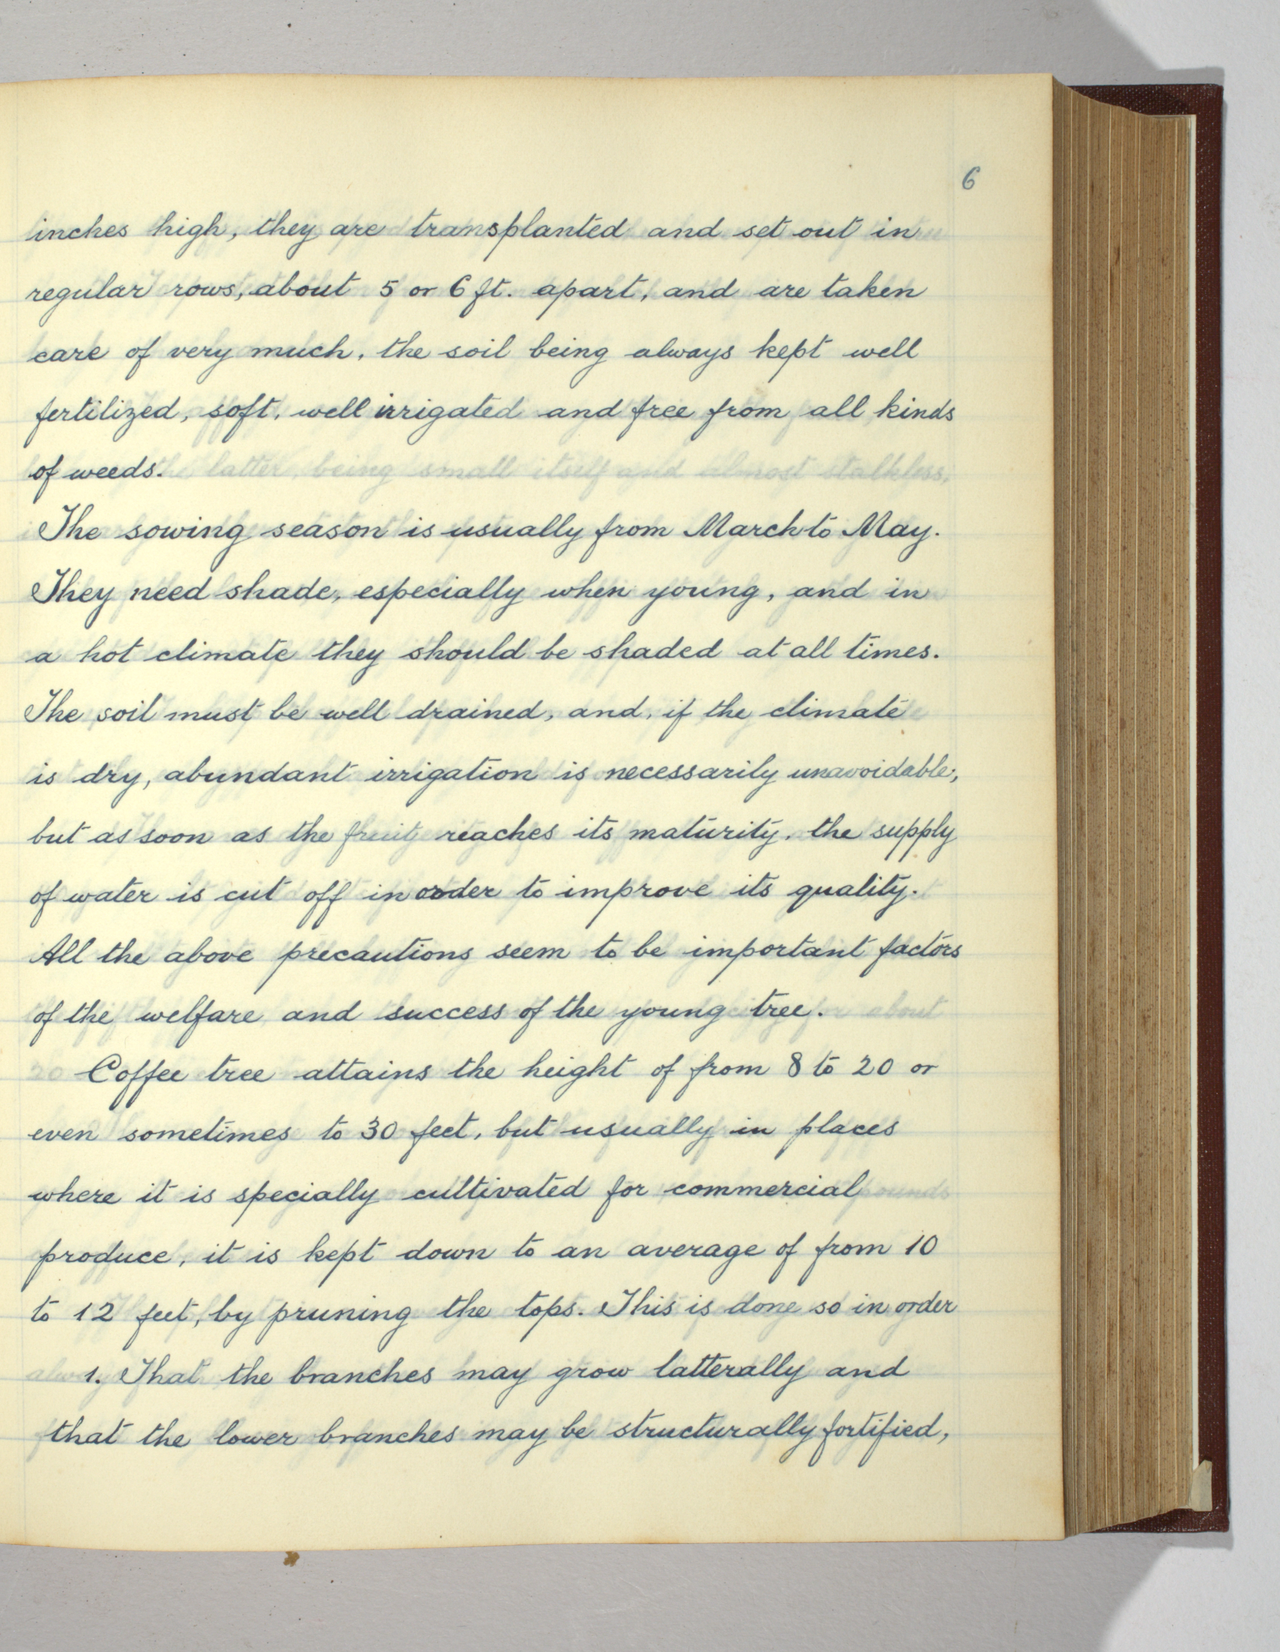 6
inches high, they are transplanted and set out in
regular rows, about 5 or 6 ft. apart, and are taken
care of very much, the soil being always kept well
fertilized, soft, well irrigated and free from all kinds
of weeds.
The sowing season is usually from March to May.
They need shade, especially when young, and in
a hot climate they should be shaded at all times.
The soil must be well drained, and, if the climate
is dry, abundant irrigation is necessarily unavoidable;
but as soon as the fruit reaches its maturity, the supply
of water is cut off in order to improve its quality.
All the above precautions seem to be important factors
of the welfare and success of the young tree.
Coffee tree attains the height of from 8 to 20 or
even sometimes to 30 feet, but usually in places
where it is specially cultivated for commercial
produce, it is kept down to an average of from 10
to 12 feet, by pruning the tops. This is done so in order
1. That the branches may grow latterally and
that the lower branches may be structurally fortified,